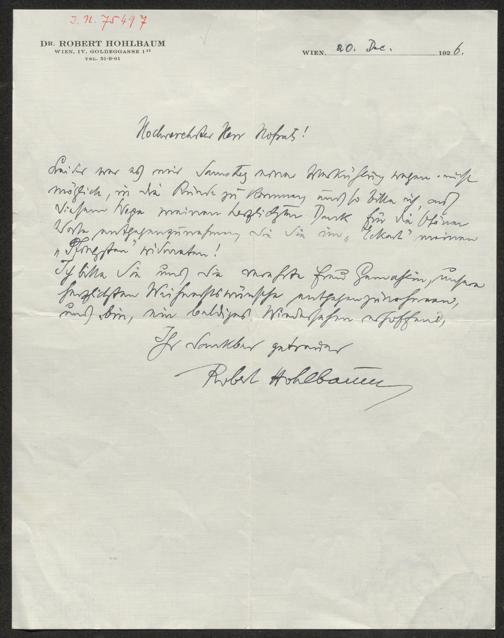 J.N. 75497
DR. ROBERT HOHLBAUM
WIEN, IV. GOLDEGGASSE 1
TEL. 51-9-01
WIEN, 20. Dec. 1926.
Hochverehrter Herr Hofrat!
Leider war es mir Samstag einer Verkühlung wegen nicht
möglich, in die Runde zu kommen und so bitte ich, auf
diesem Wege meinen herzlichsten Dank für die schönen
Worte entgegenzunehmen, die Sie im „Eckart" meinem
„Pfingsten" widmeten!
Ich bitte Sie und die verehrte Frau Gemahlin, unsere
herzlichsten Weihnachtswünsche entgegenzunehmen,
und bin, ein baldiges Wiedersehen erhoffend,
Ihr dankbar getreuer
Robert Hohlbaum